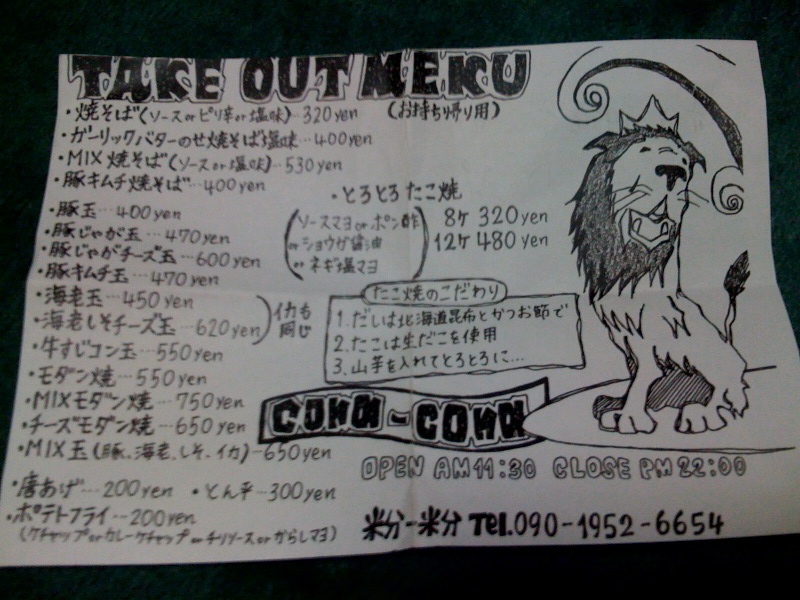 TAKE OUT MENU
・焼そば(ソース or ピリ辛 or 塩味)…320yen
(お持ち帰り用)
・ガーリックバターのせ焼そば塩味…400yen
・MIX焼そば(ソース or 塩味)…530yen
・豚キムチ焼そば…400yen
・豚玉…400yen
・豚じゃが玉…470yen
・豚じゃがチーズ玉…600yen
・豚キムチ玉…470yen
・海老玉…450yen
・海老しそチーズ玉…620yen
イカも同じ
・牛すじコン玉…550yen
・モダン焼…550yen
・MIXモダン焼…750yen
・チーズモダン焼…650yen
・MIX玉(豚、海老、しそ、イカ)…650yen
・唐あげ…200yen ・とん平…300yen
・ポテトフライ…200yen
(ケチャップ or カレーケチャップ or チリソース or からしマヨ)
・とろとろたこ焼
(ソースマヨ or ポン酢
or ショウガ醤油
or ネギ塩マヨ)
8ヶ 320yen
12ヶ 480yen
たこ焼のこだわり
1.だしは北海道昆布とかつお節で
2.たこは生だこを使用
3.山芋を入れてとろとろに…
COMA-COMA
OPEN AM11:30 CLOSE PM22:00
粉-粉 Tel.090-1952-6654